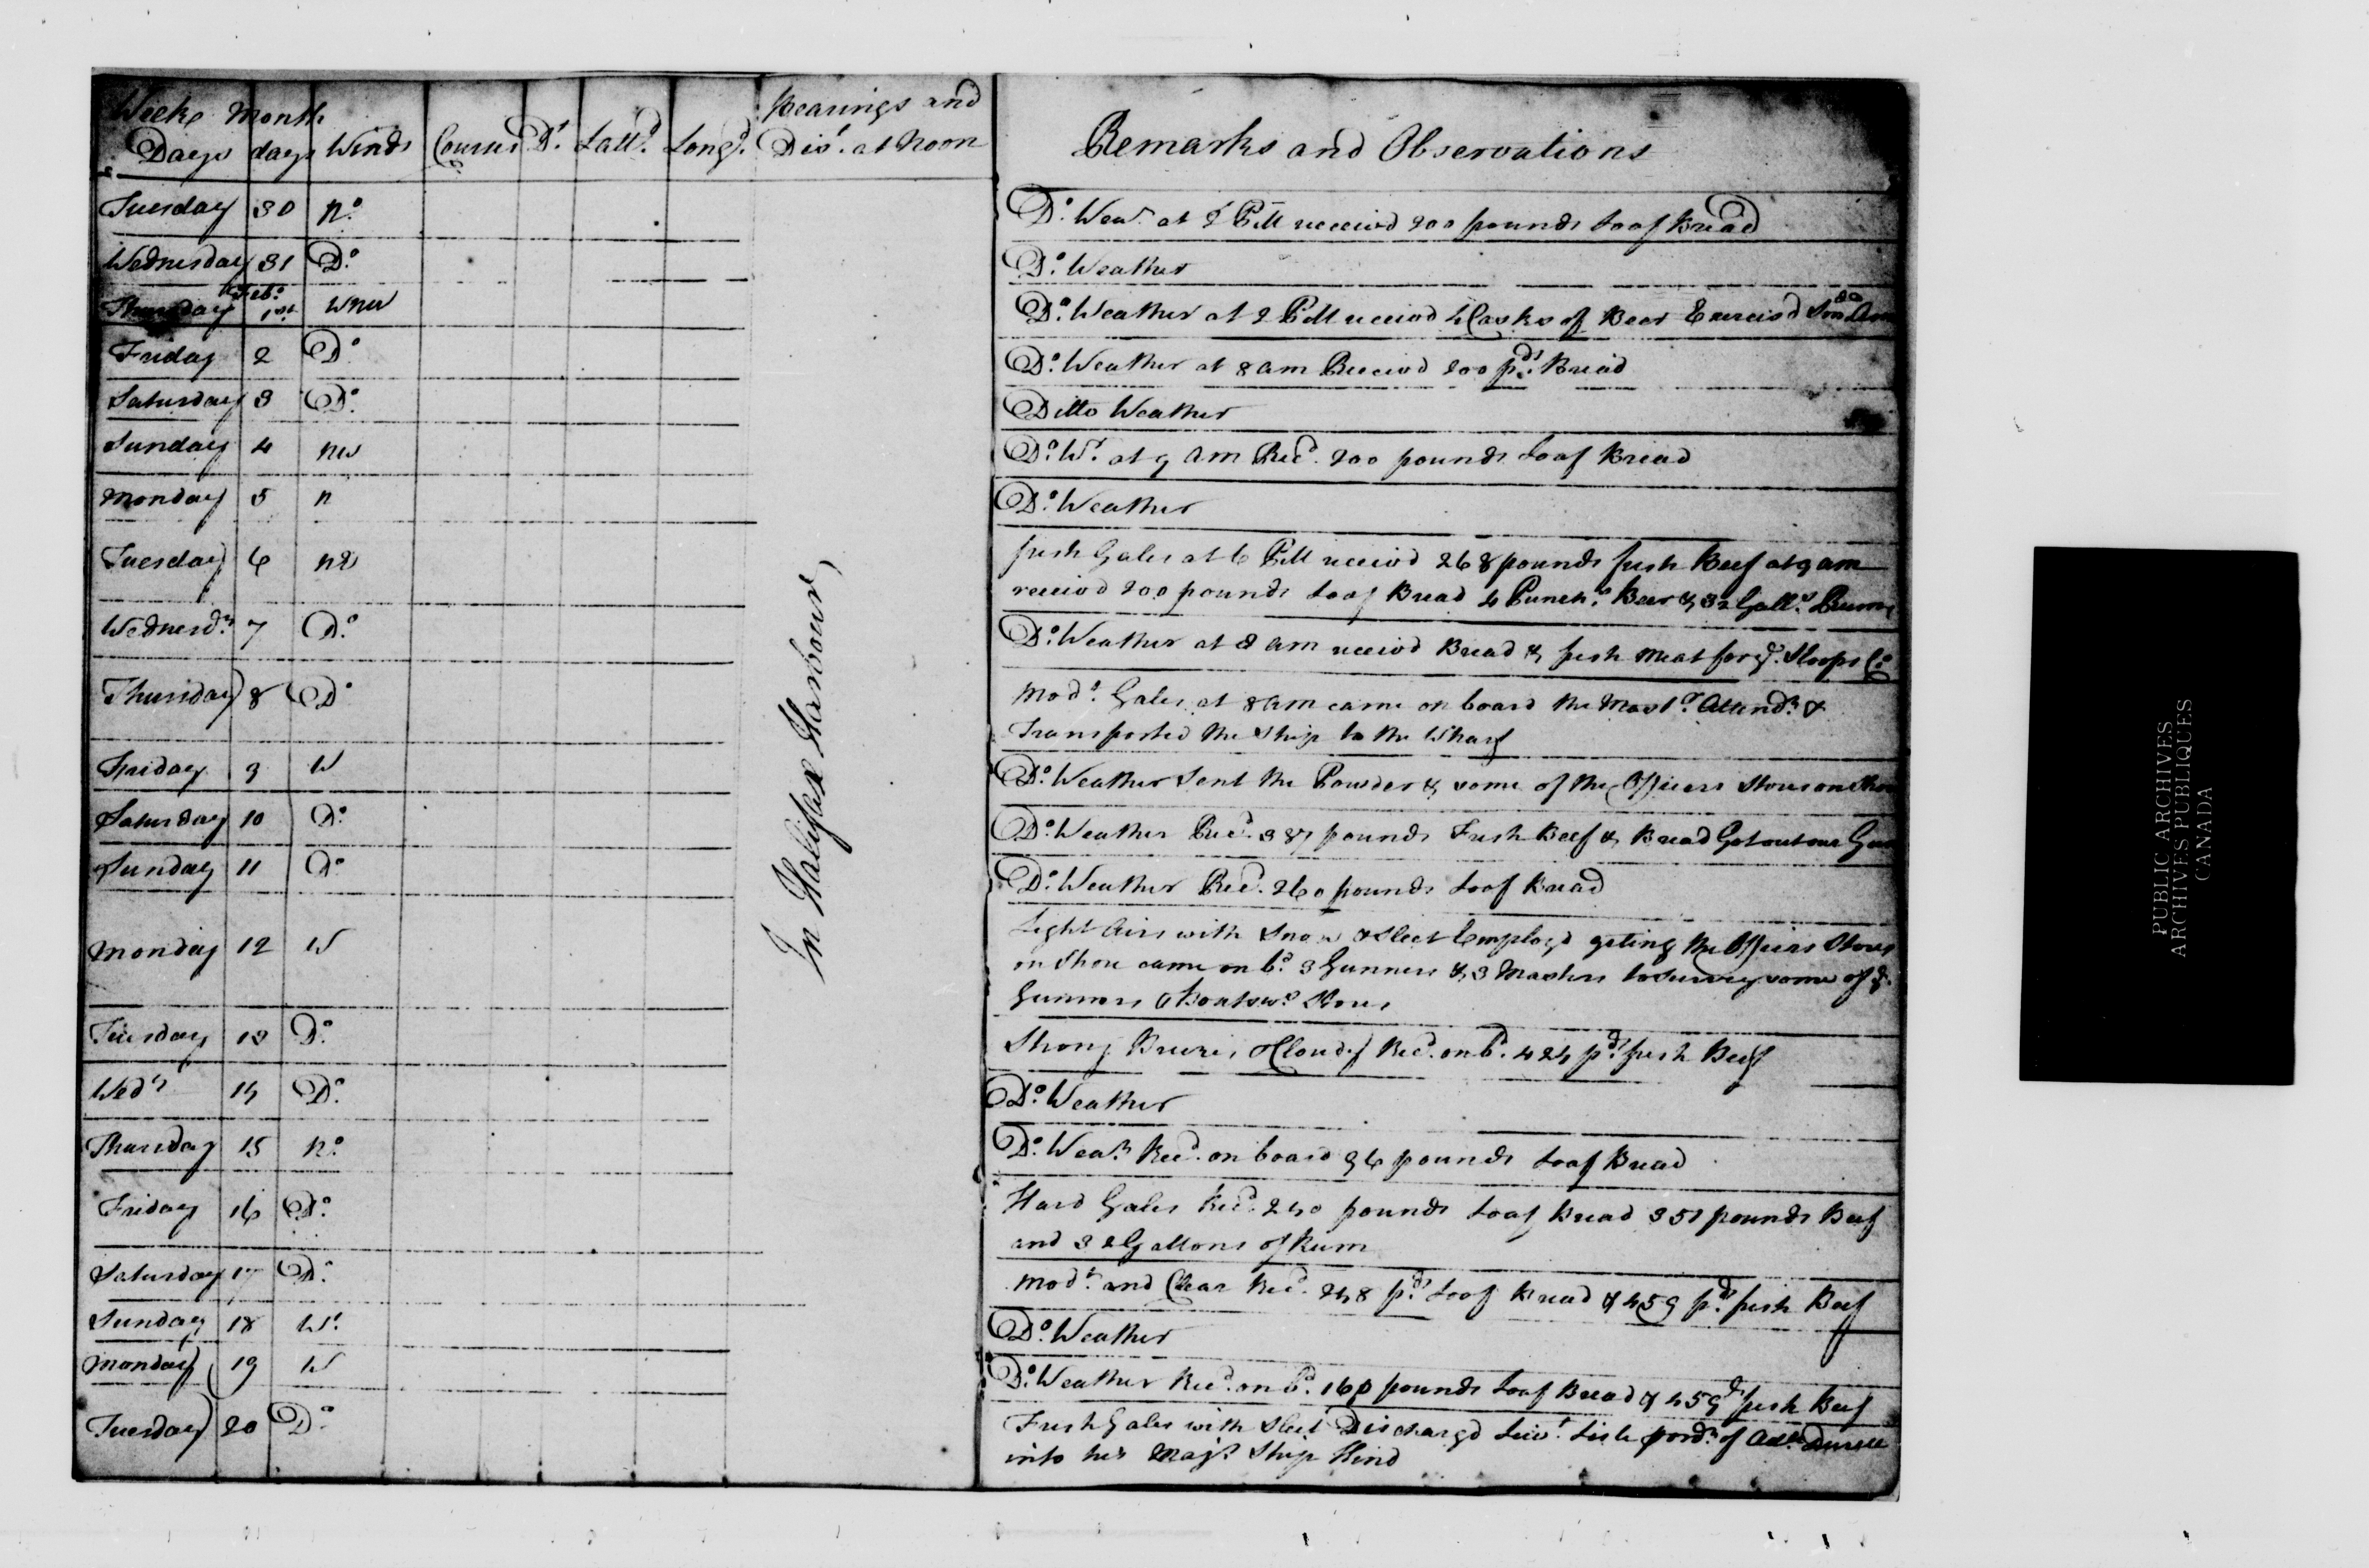 Week Month Bearings and
Days days Winds Courses D.t Latt.d Long.d Dis.t at Noon Remarks and Observations
Tuesday 30 N.o D.o Wea.r at 2 PM received 200 pounds Loaf Bread
Wednesday 31 D.o D.o Weather
Thursday Feb.o 1st WNW D.o Weather at 2 PM received 4 Casks of Beer Exercis'd
Friday 2 D.o D.o Weather at 8 am Received 200 p.ds Bread
Saturday 3 D.o Ditto Weather
Sunday 4 NW D.o W.r at 9 am Rec.d 200 pounds Loaf Bread
Monday 5 N D.o Weather
Tuesday 6 NE fresh Gales at 6 PM receivd 268 pounds fresh Beef at 9 am
receivd 200 pounds Loaf Bread 4 Punch.s Beer & 32 Gall.s Rum
Wednesd.y 7 D.o D.o Weather at 8 am receivd Bread & fresh meat for y.e Sloops C.o
Thursday 8 D.o Mod.e Gales at 8 am came on board the Mast.r Attend.t &
Transported the Ship to the Wharf
Friday 9 W D.o Weather Sent the Powder & some of the Officers Stores on Shore
Saturday 10 D.o D.o Weather Rec.d 387 pounds Fresh Beef & Bread Got out our
Sunday 11 D.o D.o Weather Rec.d 260 pounds Loaf Bread
Monday 12 W Light Airs with Snow & Sleet Employd geting the Officers Stores
on Shore came on b.d 3 Gunners & 3 Masters to survey some of y.e
Gunners & Boatsw.s Stores
Tuesday 13 D.o Strong Breezes & Cloudy Rec.d on b.d 424 p.ds fresh Beef
Wed.y 14 D.o D.o Weather
Thursday 15 N.o D.o Wea.r Rec.d on board 96 pounds Loaf Bread
Friday 16 D.o Hard Gales Rec.d 240 pounds Loaf Bread 351 pounds Beef
and 32 Gallons of Rum
Saturday 17 D.o Mod.t and Clear Rec.d 248 p.ds Loaf Bread & 459 p.ds fresh Beef
Sunday 18 W.t D.o Weather
Monday 19 W D.o Weather Rec.d on b.d 160 pounds Loaf Bread & 459 d.s fresh Beef
Tuesday 20 D.o Fresh Gales with Sleet Dischargd Liev.t Lisle p ord.r of Ad.l Durell
into his Maj.s Ship Hind
In Halifax Harbour
PUBLIC ARCHIVES
ARCHIVES PUBLIQUES
CANADA